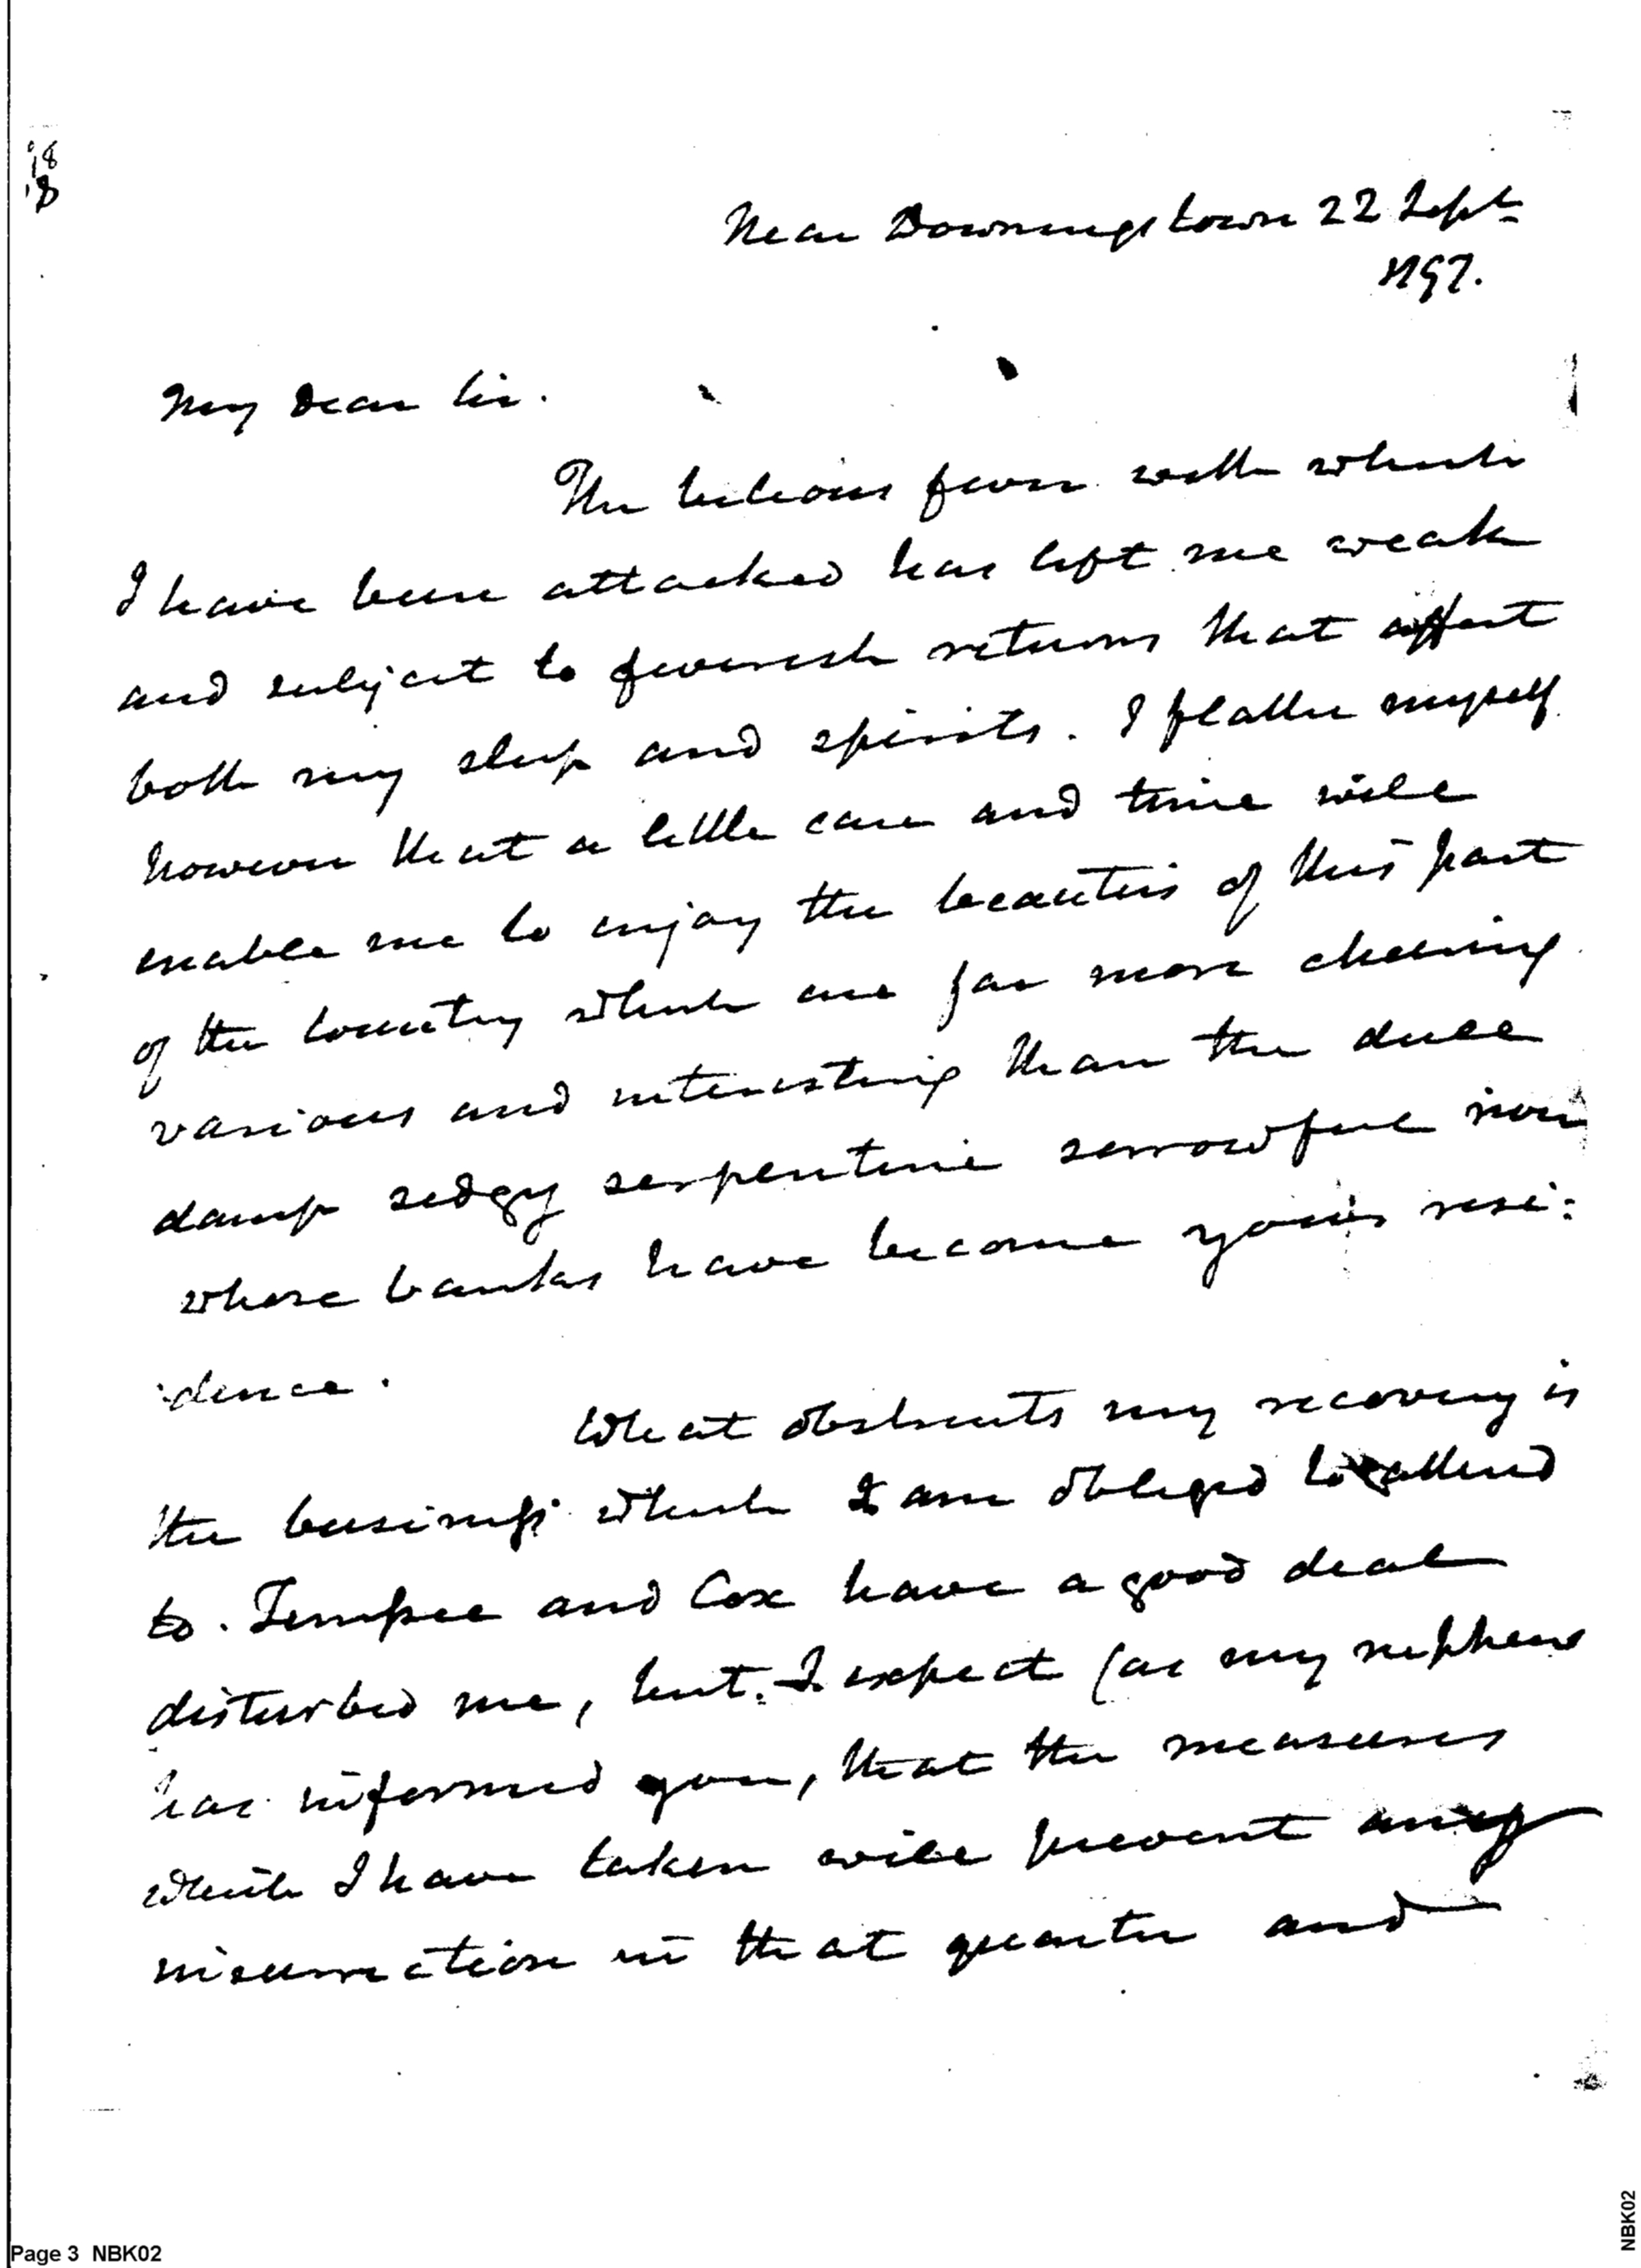 18
18
Near Downingstown 22 Sept
1797.
My Dear Sir.
The bilious fever with which
I have been attacked has left me weak
and subject to feverish returns that affect
both my sleep and spirits. I flatter myself
however that a little care and time will
enable me to enjoy the beauties of this part
of the Country which are far more chearing
various and interesting than the dull
damp sedgy serpentine sorrowful river
whose banks have become your resi:
:dence.
What obstructs my recovery is
the business which I am obliged to attend
to. and Cox have a good deal
disturbed me, but I expect (as my nephew
has informed you, that the measures
which I have taken will prevent any
insurrection in that quarter and
Page 3 NBK02
NBK02